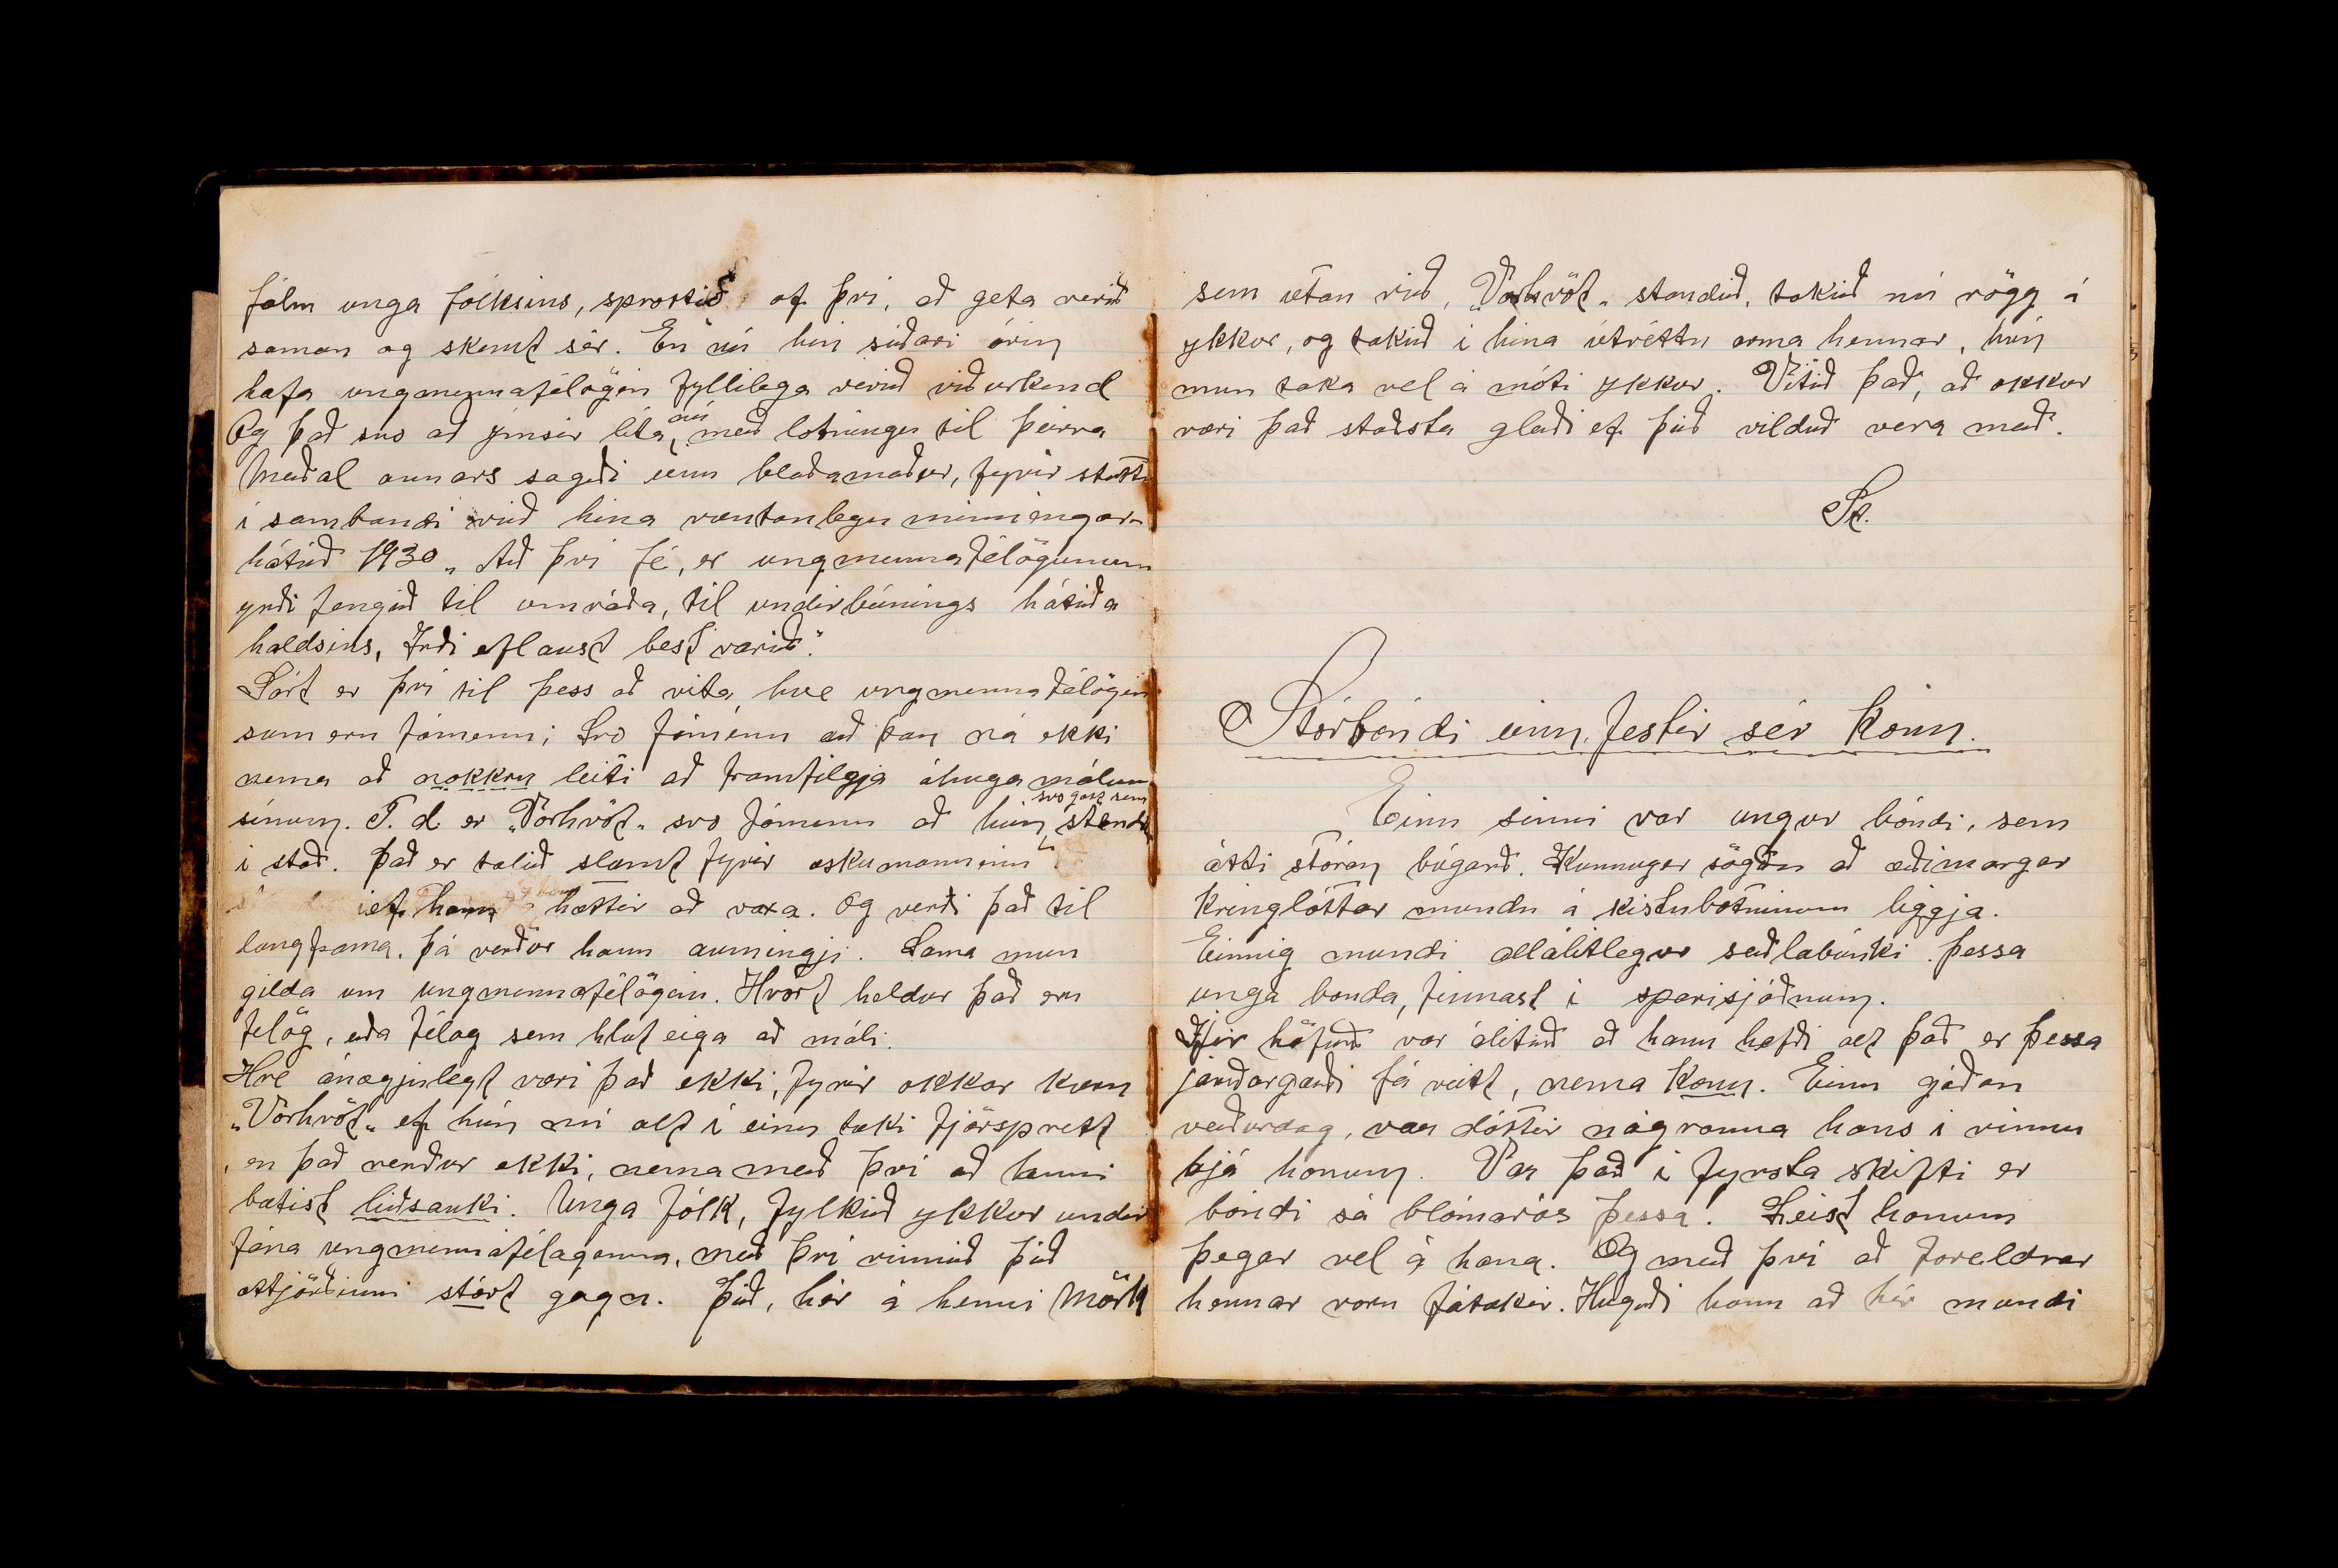 fálm unga fólksins, sprottið af því, að geta verið
saman og skemt sér. En nú hin síðari árin
hafa ungmennafélögin fyllilega verið viðurkend
Og það svo að ýmsir líta nú með lotningu til þeirra
Meðal annars sagði einn blaðamaður, fyrir stuttu
í sambandi við hina væntanlegu minningar-
hátíð 1930 „Að því fé, er ungmennafélögunum
yrði fengið til umráða, til undirbúnings hátíða
haldsins, Irði eflaust best varið."
Sárt er því til þess að vita, hve ungmennafélögin
sum eru fámenn; Svo fámenn að þau ná ekki
nema að nokkru leiti að framfilgja áhuga málum
sínum. T. d. er „Vorhvöt„ svo fámenn að hún svo gott sem stendur
í stað. Það er talið slæmt fyrir æskumanninn
ef hann hættir að vaxa. Og verði það til
langframa, þá verður hann aumingji. Sama mun
gilda um ungmennafélögin. Hvort heldur það eru
félög, eða félag sem hlut eiga að máli.
Hve ánægjulegt væri það ekki, fyrir okkar kæru
„Vorhvöt„ ef hún nú alt í einu tæki fjörsprett
, en það verður ekki, nema með því að henni
bætist liðsauki. Unga fólk, fylkið ykkur undir
fána ungmennafélaganna, með því vinnið þið
ættjörðinni stórt gagn. Þið, hér á henni Mörk
sem utan við, „Vorhvöt„ standið, takið nú rögg á
ykkur, og takið í hina útréttu arma hennar, hún
mun taka vel á móti ykkur. Vitið það, að okkur
væri það stæðsta gleði ef þið vilduð vera með.
Sk.
Stórbóndi einn, festir sér konu.
Einu sinni var ungur bóndi, sem
átti stóran búgarð. Kunnugir sögðu að æðimargar
kringlóttar mundu á kistubotninum liggja.
Einnig mundi allálitlegur seðlabúnki þessa
unga bonda, finnast í sparisjóðnum.
Ifir höfuð var álitið að hann hefði alt það er þessa
jarðargæði fá veitt, nema konu. Einn góðan
veðurdag, var dóttir nágranna hans í vinnu
hjá honum. Var það í fyrsta skifti er
bóndi sá blómarós þessa. Leist honum
þegar vel á hana. Og með því að foreldrar
hennar voru fátækir. Hugði hann að hér mundi